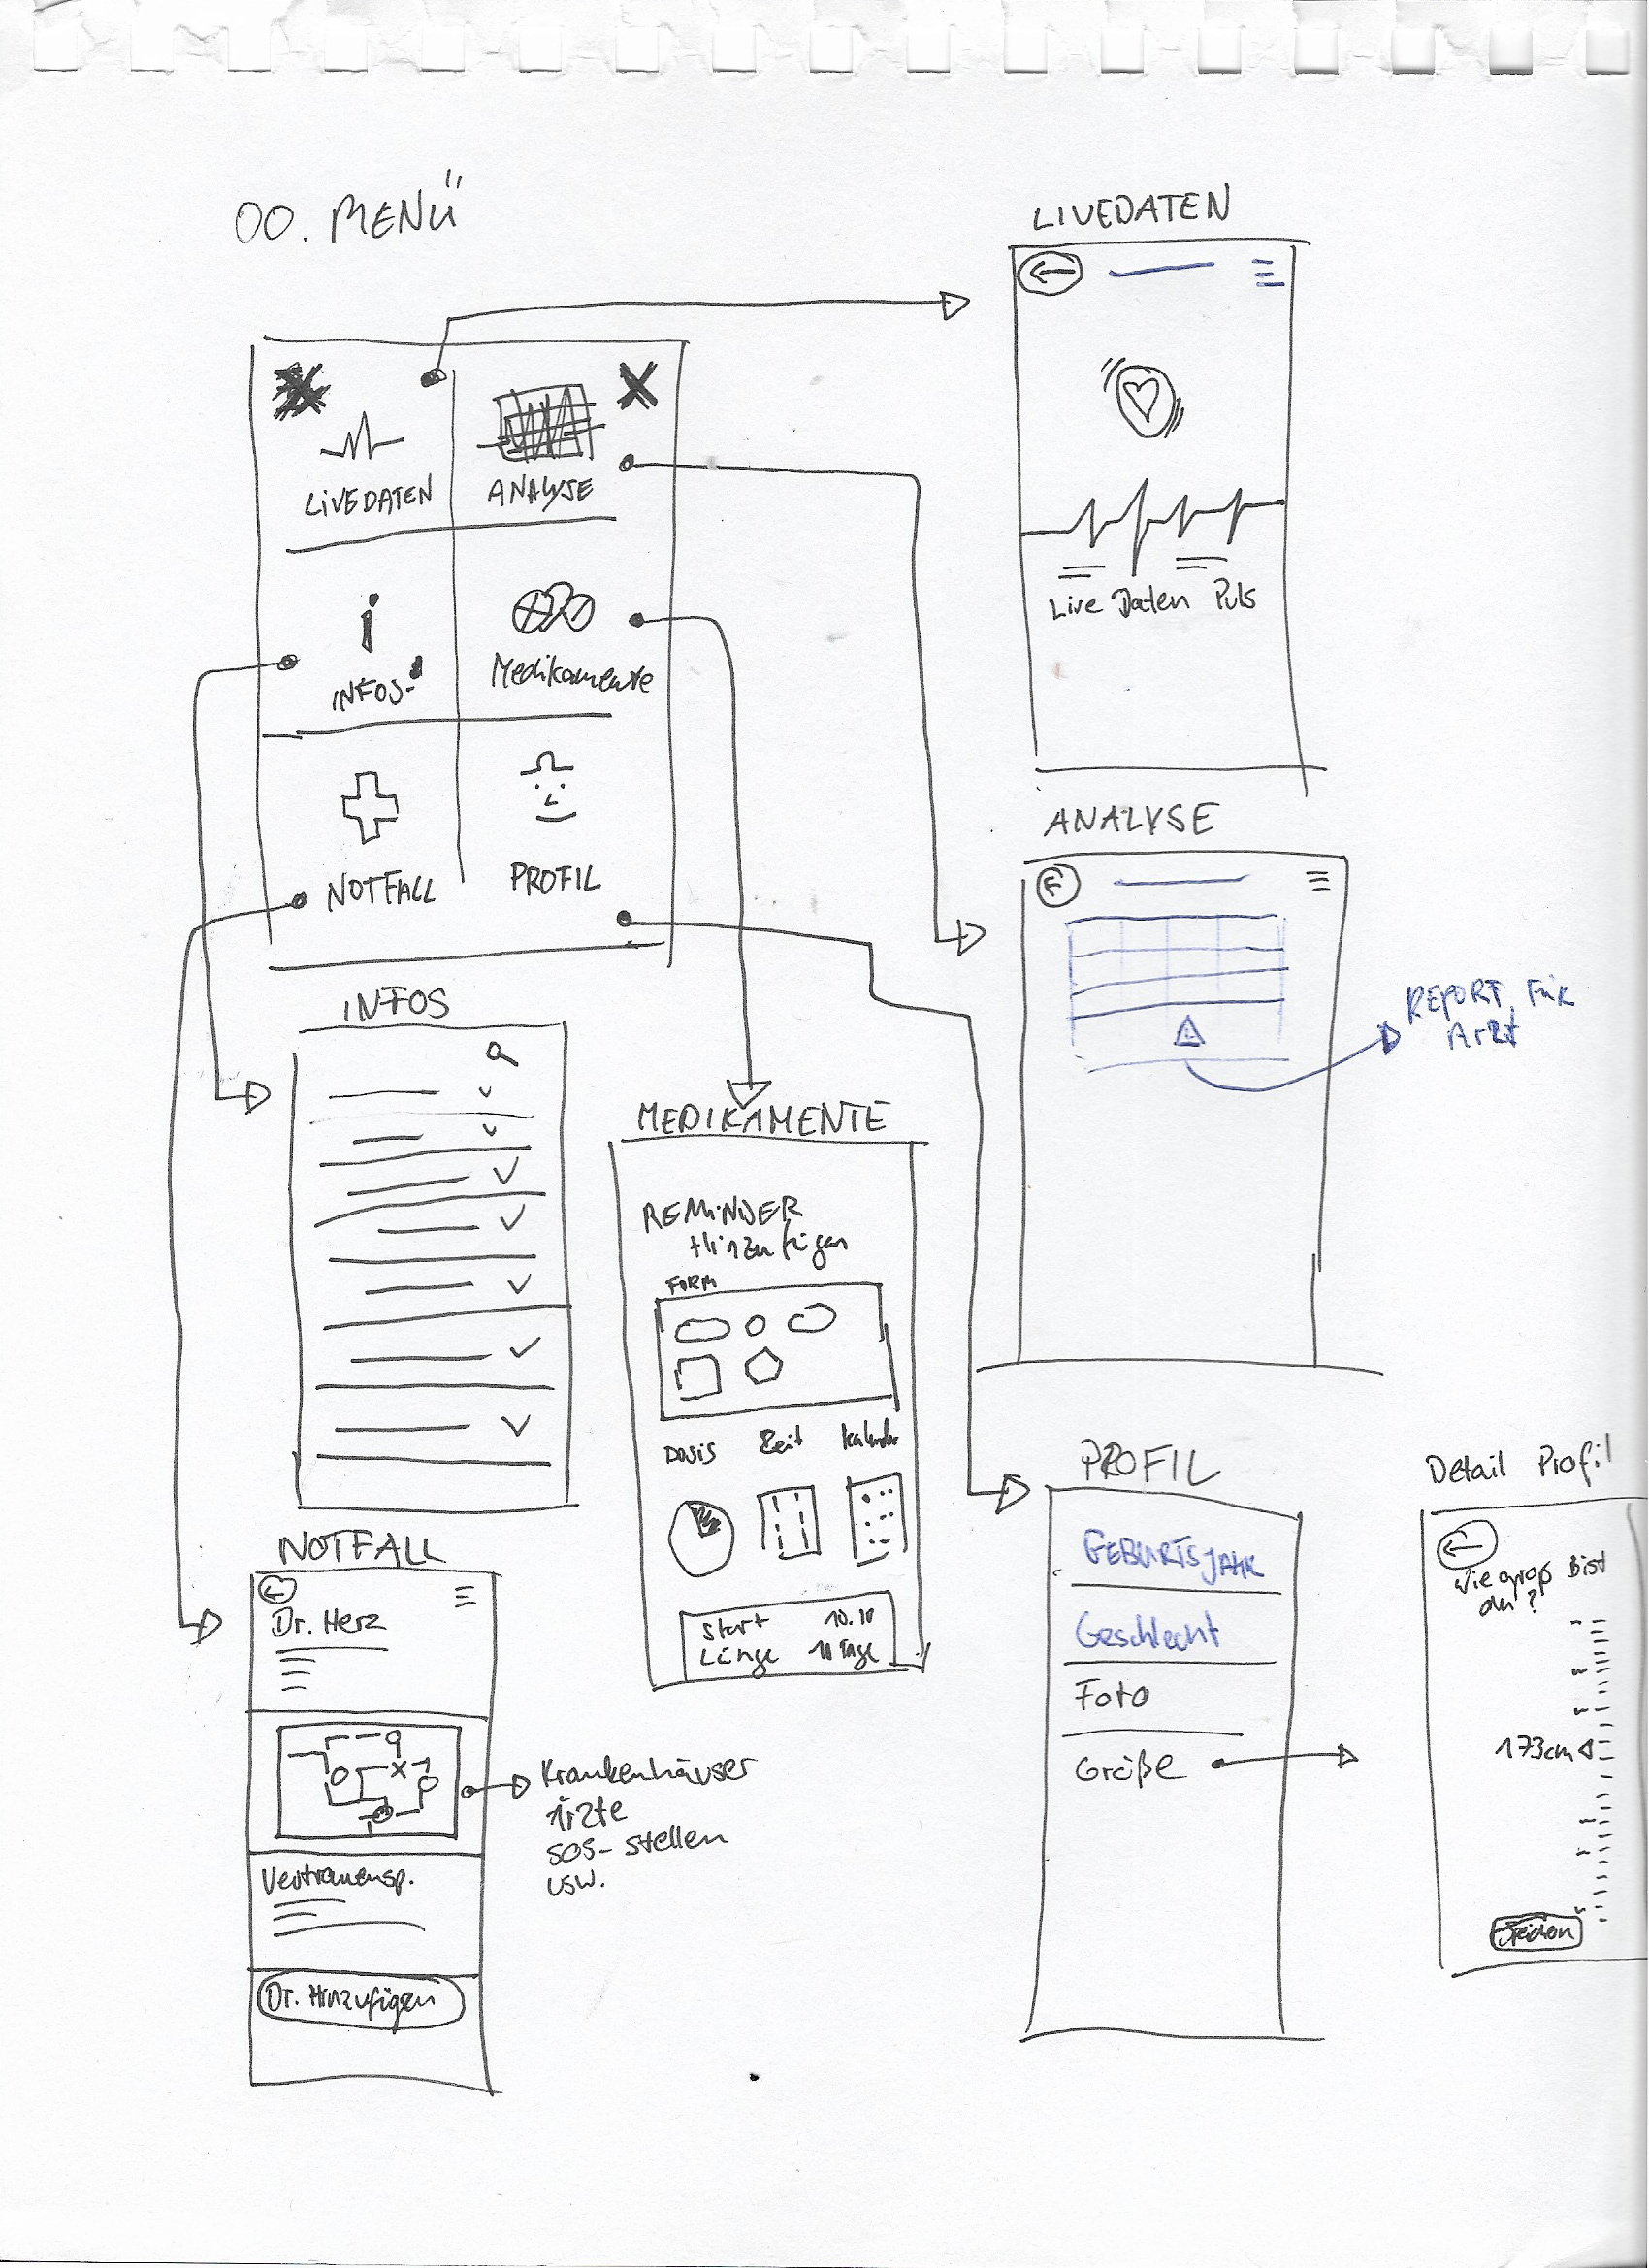 00. MENÜ
LIVEDATEN
ANALYSE
INFOS
Medikamente
NOTFALL
PROFIL
LIVEDATEN
Live Daten Puls
ANALYSE
REPORT für
Arzt
INFOS
MEDIKAMENTE
REMINDER
Hinzufügen
FORM
Dosis Zeit Kalender
Start 10.10
Länge 11 Tage
NOTFALL
Dr. Herz
Krankenhäuser
Ärzte
SOS-Stellen
usw.
Vertrauensp.
Dr. Hinzufügen
PROFIL
GEBURTSJAHR
Geschlecht
Foto
Größe
Detail Profil
Wie groß bist
du?
173cm